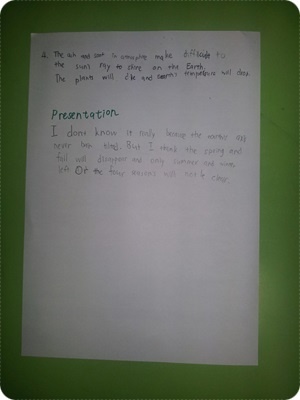 2. The ash and soot in atmosphere make difficult to
the sun's ray to shine on the Earth.
The plants will die and earth's temperature will drop.
Presentation
I dont know it really because the earths
never been tired. But I think the spring and
fall will disappear and only summer and winter
left Or the four seasons will not be clear.